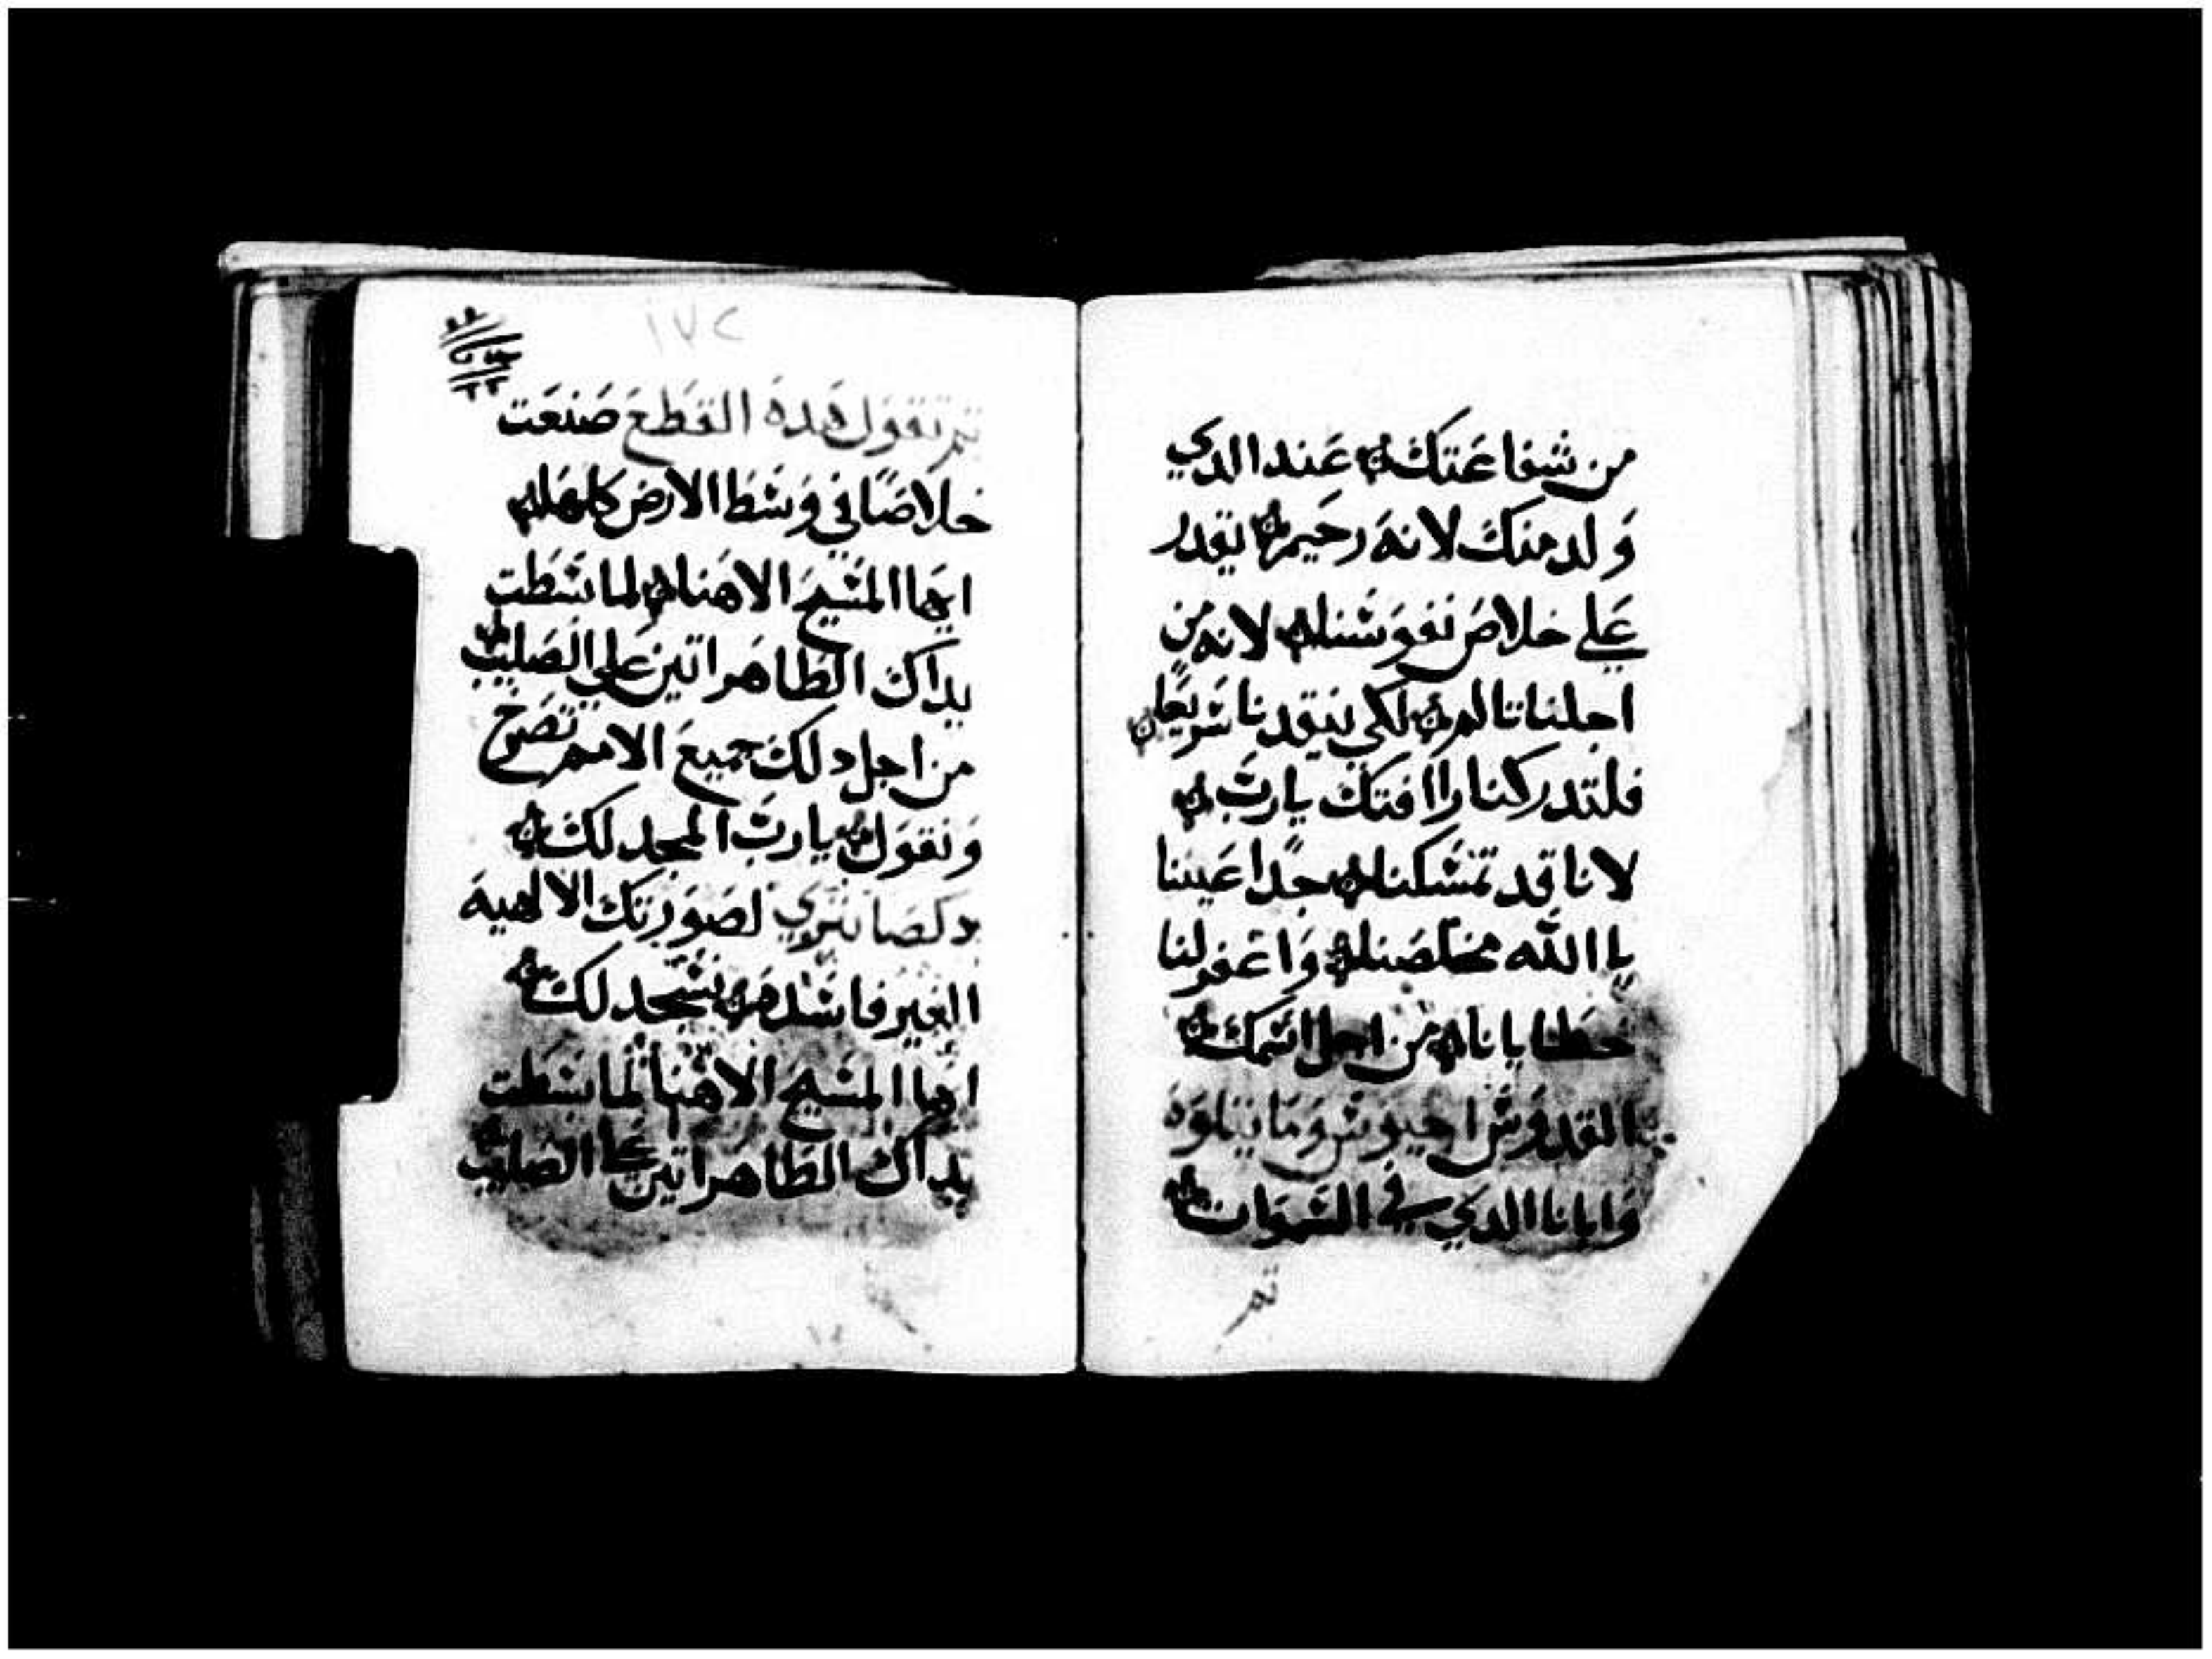 من شفاعتك عند الدي
ولد منك لانه رحيم يقدر
علي خلاص نفوسنا لانه من
اجلنا تالم لكي ينقدنا سريعا
فلتدركنا راافتك يارب
لانا قد تمسكنا جدا عيننا
ياالله مخلصنا واغفر لنا
خطايانا من اجل اسمك
القدوس اجيوس وما يتلوه
وابانا الدي في السموات
تم
١٧٢
تم نقول هده القطع صنعت
خلاصا في وسط الارض كلها
ايها المسيح الاهنا لما بسطت
يداك الطاهراتين علي الصليب
من اجل دلك جميع الامم تصرخ
ونقول يارب المجد لك
دكصابتري لصورتك الالهيه
الغير فاسده نسجد لك
ايها المسيح الاهنا لما بسطت
يداك الطاهراتين علي الصليب